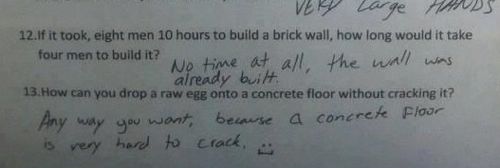 VERY Large HANDS
12.If it took, eight men 10 hours to build a brick wall, how long would it take
four men to build it?
No time at all, the wall was
already built.
13.How can you drop a raw egg onto a concrete floor without cracking it?
Any way you want, because a concrete floor
is very hard to crack.